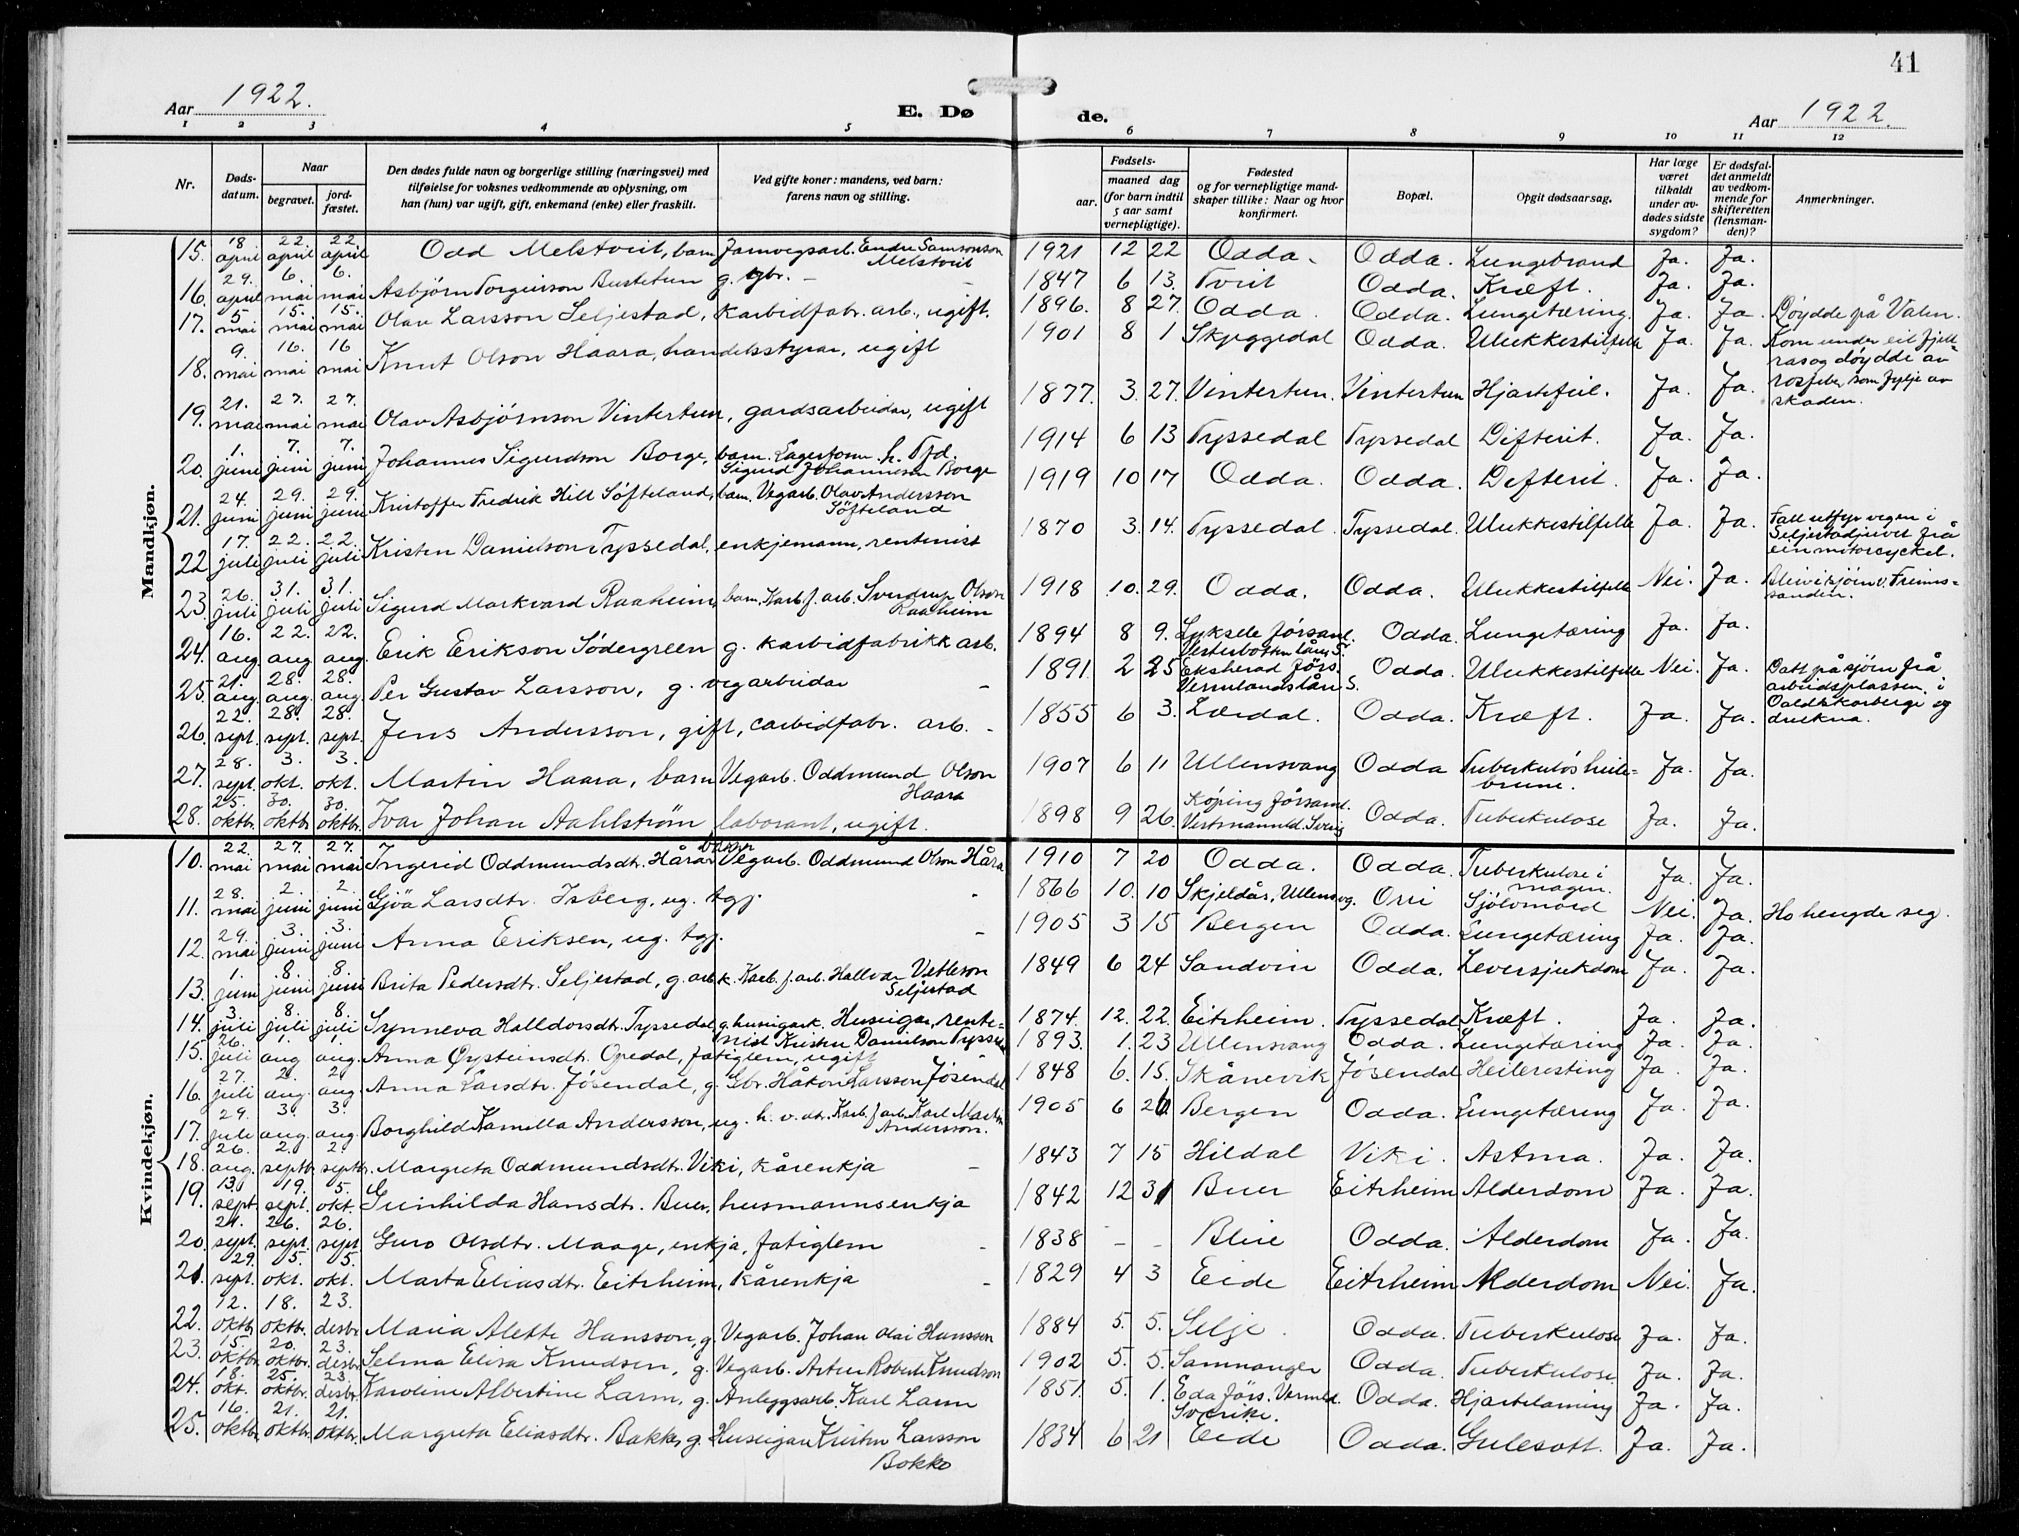 41
Aar 1922.
E. Dø
de.
Aar 1922.
1 2 3 4 5 6 7 8 9 10 11 12
Nr.
Døds-
datum.
Naar
begravet.
jord-
fæstet.
Den dødes fulde navn og borgerlige stilling (næringsvei) med
tilføielse for voksnes vedkommende av oplysning, om
han (hun) var ugift, gift, enkemand (enke) eller fraskilt.
Ved gifte koner: mandens, ved barn:
farens navn og stilling.
Fødsels-
aar.
maaned dag
(for barn indtil
5 aar samt
vernepligtige).
Fødested
og for vernepligtige mand-
skaper tillike: Naar og hvor
konfirmert.
Bopæl.
Opgit dødsaarsag.
Har læge
været
tilkaldt
under av-
dødes sidste
sygdom?
Er dødsfal-
det anmeldt
av vedkom-
mende for
skifteretten
(lensman-
den)?
Anmerkninger.
Mandkjøn.
15. 18. april 22. april 22. april Odd Melstveit, barn Jarnvegsarb. Endre Samsonson Melstveit 1921 12 22 Odda. Odda. Lungebrand Ja. Ja.
16. 29. april 6. mai 6. mai Asbjørn Torgeirson Bustetun g. gbr. - 1847 6 13. Tveit Odda. Kræft. Ja. Ja.
17. 5 mai 15. mai 15. mai Olav Larsson Seljestad, karbidfabr. arb., ugift. 1896. 8 27. Odda. Odda. Lungetæring. Ja. Ja. Døydde på Valen.
18. 9. mai 16. mai 16 mai Knut Olson Haara, handelsstyrar, ugift 1901 8 1 Skjeggedal Odda. Ulukkestilfelle Ja. Ja. Kom under eit fjell-
ras og døydde av
rosfeber, som fylje av
skaden.
19. 21. mai 27. mai 27. mai Olav Asbjørnson Vintertun, gardsarbeidar, ugift 1877. 3. 27. Vintertun. Vintertun Hjartefeil. Ja. Ja.
20. 1. juni 7. juni 7. juni Johannes Sigurdson Borge, barn. Lagerform. h. Tfd. Sigurd Johanneson Borge 1914 6 13 Tyssedal Tyssedal Difterit. Ja. Ja.
21. 24. juni 29. juni 29. juni Kristoffer Fredrik Hill Søfteland, barn. Vegarb. Olav Andersson Søfteland 1919 10 17 Odda. Odda. Difterit. Ja. Ja.
22 17. juli 22. juli 22. juli Kristen Danielson Tyssedal, enkjemann, rentenist 1870 3. 14. Tyssedal. Tyssedal. Ulukkestilfelle Ja. Ja. Fall utfyr vegen i
Seljestadjuvet frå
ein motorcyckel.
23. 26. juli 31. juli 31. juli Sigurd Markvard Raaheim, barn. Karb.f.arb. Sverdrup Olson Raaheim 1918 10. 29. Odda. Odda. Ulukkestilfelle Nei. Ja.
24. 16. aug. 22. aug. 22. aug. Erik Erikson Södergreen g. karbidfabrikk arb. 1894 8 9. Lyksele förs Odda. Lungetæring Ja. Ja.
25. 21. aug. 28. aug. 28. aug. Per Gustav Larsson, g. vegarbeidar - 1891. 2 25 Eksherad förs. Vermlandslän S. Odda. Ulukkestilfelle Nei. Ja. Datt på sjøen frå
arbeidsplassen i
drukna.
26. 22. sept. 28. sept. 28. sept. Jens Andersson, gift, carbidfabr. arb. - 1855 6 3. Lærdal. Odda. Kræft. Ja. Ja.
27. 28. sept. 3. okt. 3. okt. Martin Haara, barn Vegarb. Oddmund Olson Haara 1907 6 11 Ullensvang Odda Tuberkuløs heile-
brune. Ja. Ja.
28. 25. oktbr. 30. oktbr. 30. oktbr. Ivar Johan Aahlstrøm laborant, ugift. 1898 9 26. Köping församl. Vestmannld. Sverig Odda. Tuberkulose Ja. Ja.
Kvindekjøn.
10. 22. mai 27. mai 27. mai Ingerid Oddmundsdtr. Håra barn Vegarb. Oddmund Olson Håra 1910 7 20 Odda. Odda. Tuberkulose i
magen. Ja. Ja.
11. 28. mai 2. juni 2. juni Gjöa Larsdtr. Isberg, ug. tgj. - 1866 10. 10 Skjeldås, Ullensvg. Orri Sjölvmord Nei. Ja. Ho hengde seg.
12. 29. mai 3. juni 3. juni Anna Eriksen, ug. tgj. - 1905 3 15 Bergen Odda. Lungetæring Ja. Ja.
13. 1. juni 8. juni 8. juni Brita Pedersdtr. Seljestad, g. arbk. Karb.f.arb. Hallvar Vetleson Seljestad 1849 6 24 Sandvin Odda. Leversjukdom Ja. Ja.
14. 3. juli 8. juli 8. juli Synneva Halldorsdtr. Tyssedal g. huseigark. Huseigar, rente-
nist Kristen Danielson Tyssedal 1874. 12. 22. Eitrheim. Tyssedal Kræft. Ja. Ja.
15. 26. juli 1. aug. 1. aug. Anna Øysteinsdtr. Opedal, fatiglem, ugift - 1893. 1. 23 Ullensvang Odda. Lungetæring Ja. Ja.
16. 27. juli 2. aug. 2. aug. Anna Larsdtr. Jösendal, g. Gbr. Håkon Larsson Jösendal 1848 6. 15. Skånevik Jösendal Heileresting Ja. Ja.
17. 29. juli 3. aug. 3. aug. Borghild Kamilla Andersson, ug. h. v. dtr. Karb.f.arb. Karl Martin Andersson. 1905 6 20 Bergen Odda. Lungetæring Ja. Ja.
18. 26. aug. 2. septbr. 2. septbr. Margreta Oddmundsdtr. Viki, kårenkja - 1843 7 15 Hildal Viki. Astma. Ja. Ja.
19. 13. sept. 19. sept. 5. okt. Gunhilda Hansdtr. Buer, husmannsenkja 1842 12 31 Buer Eitrheim Alderdom Ja. Ja.
20. 21. sept. 26. sept. 26. sept. Guro Olsdtr. Maage, enkja, fatiglem - 1838 - - Bleie Odda. Alderdom Ja. Ja.
21. 29. sept. 5. okt. 5. okt. Marta Eliasdtr. Eitrheim, kårenkja - 1829 4 3 Eide Eitrheim Alderdom Nei. Ja.
22. 12. oktbr. 18. oktbr. 23. desbr Maria Alette Hansson, g. Vegarb. Johan Olai Hansson 1884 5. 5. Selje. Odda. Tuberkulose Ja. Ja.
23. 15. oktbr. 20. oktbr. 23. desbr. Selma Elisa Knudsen, g. Vegarb. Artur Robert Knudson 1902 5. 5. Samnanger Odda. Tuberkulose Ja. Ja.
24. 18. okt. 25. oktbr. 23. desbr. Karoline Albertine Larm, g. Anleggsarb. Karl Larm 1851. 5. 1. Eda förs. Vermld. Sverike. Odda. Hjartelaming Ja. Ja.
25. 16. oktbr. 21. oktbr. 21. oktbr. Margreta Eliasdtr. Bakke, g. Huseigar Kristen Larsson Bokko 1834 6 21 Eide Odda. Gulesott. Ja. Ja.